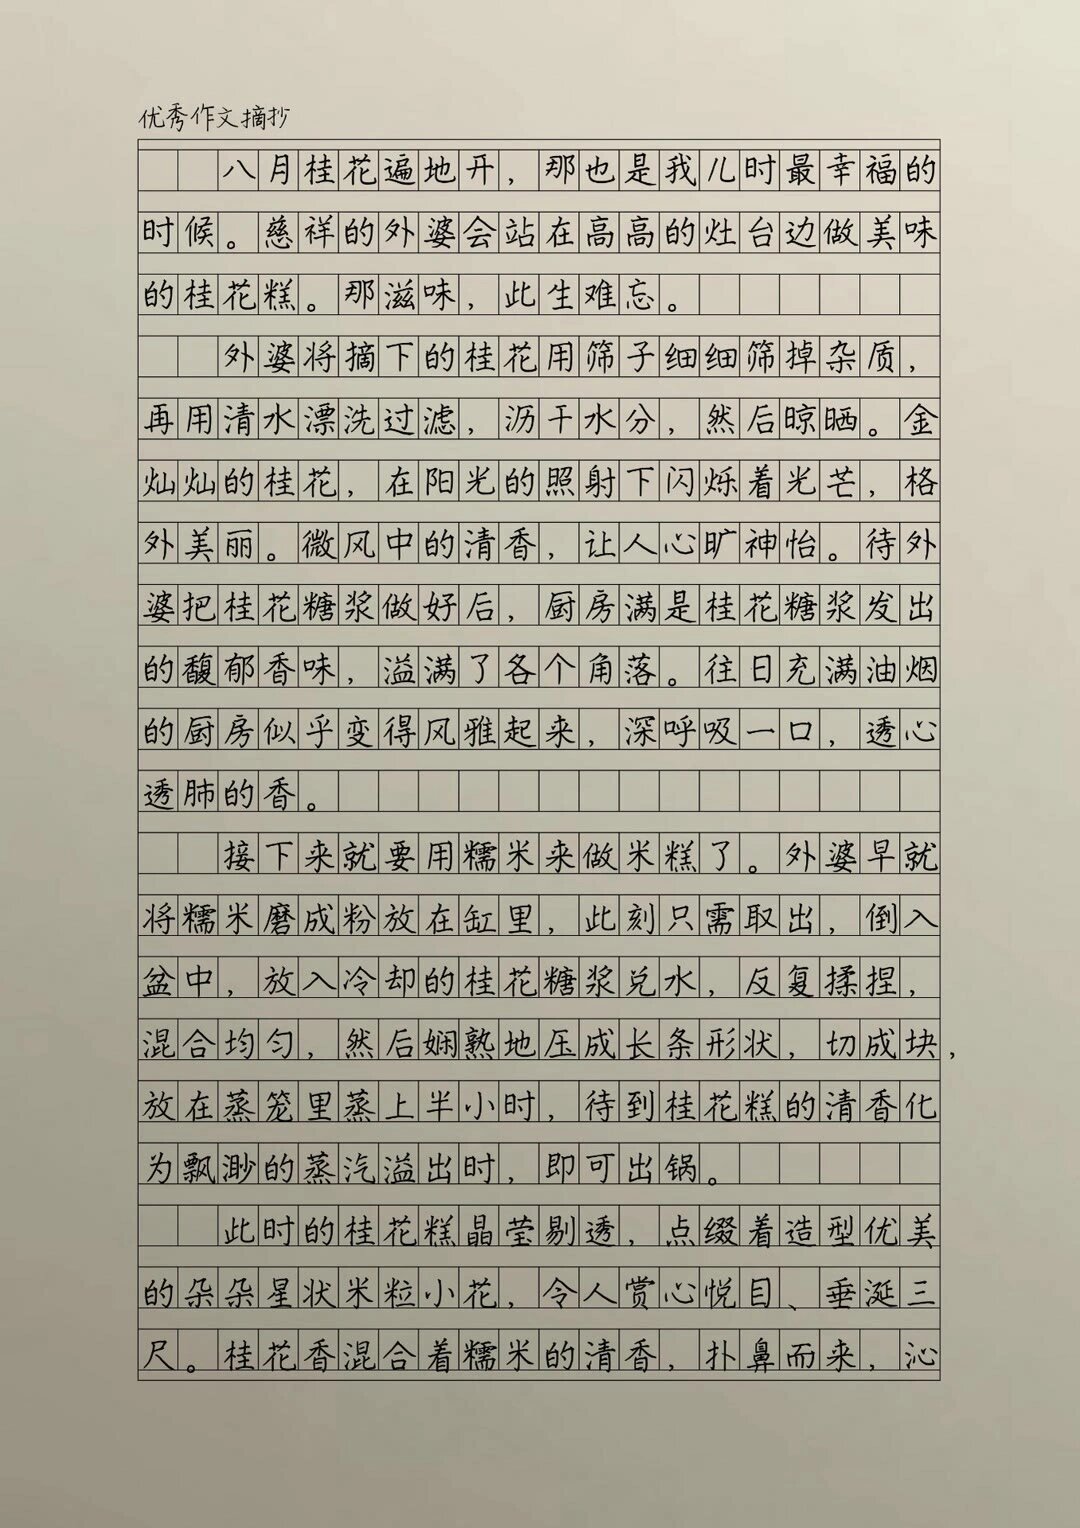 优秀作文摘抄
八月桂花遍地开，那也是我儿时最幸福的
时候。慈祥的外婆会站在高高的灶台边做美味
的桂花糕。那滋味，此生难忘。
外婆将摘下的桂花用筛子细细筛掉杂质，
再用清水漂洗过滤，沥干水分，然后晾晒。金
灿灿的桂花，在阳光的照射下闪烁着光芒，格
外美丽。微风中的清香，让人心旷神怡。待外
婆把桂花糖浆做好后，厨房满是桂花糖浆发出
的馥郁香味，溢满了各个角落。往日充满油烟
的厨房似乎变得风雅起来，深呼吸一口，透心
透肺的香。
接下来就要用糯米来做米糕了。外婆早就
将糯米磨成粉放在缸里，此刻只需取出，倒入
盆中，放入冷却的桂花糖浆兑水，反复揉捏，
混合均匀，然后娴熟地压成长条形状，切成块，
放在蒸笼里蒸上半小时，待到桂花糕的清香化
为飘渺的蒸汽溢出时，即可出锅。
此时的桂花糕晶莹剔透，点缀着造型优美
的朵朵星状米粒小花，令人赏心悦目、垂涎三
尺。桂花香混合着糯米的清香，扑鼻而来，沁